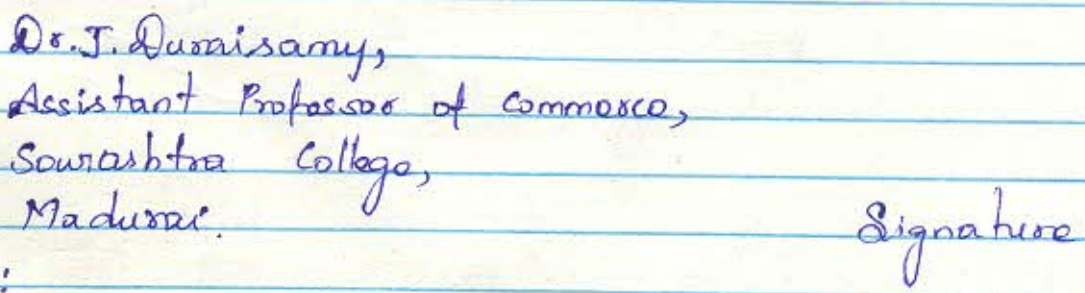 Dr. J. Duraisamy,
Assistant Professor of Commerce,
Sourashtra College,
Madurai.
Signature